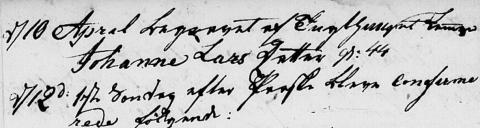 d 10 April begravet af Tugthuuset
Johanne Lars Datter gl: 44
d 12d: 1ste Sondag efter Paaske bleve Confirme
rede følgende: